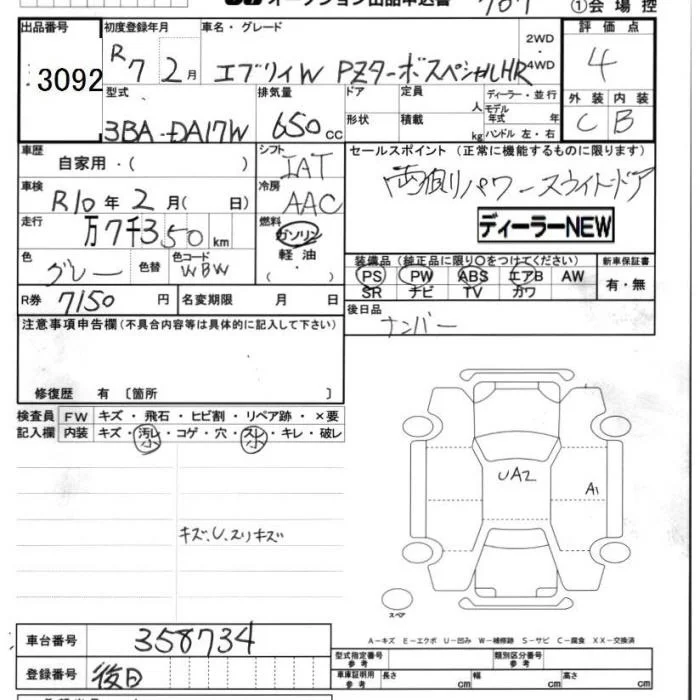 オークション出品申込書 707 ①会場控
出品番号 初度登録年月 車名・グレード 2WD・4WD 評価点
3092 R7 2月 エブリイW PZターボスペシャルHR 4
型式 排気量 ドア 定員 ディーラー・並行 外装 内装
3BA-DA17W 650cc 形状 積載 人 kg モデル年式 年 ハンドル 左・右 C B
車歴 シフト セールスポイント (正常に機能するものに限ります)
自家用・( ) IAT 両側パワースライドドア
車検 冷房
R10年2月( 日) AAC
走行 燃料 ディーラーNEW
万7千350km ガソリン
軽油
・
( )
色 色替 色コード
グレー WBW
装備品 (純正品に限り○をつけてください) 新車保証書
PS PW ABS エアB AW 有・無
SR ナビ TV カワ
R券 7150円 名変期限 月 日
後日品
ナンバー
注意事項申告欄(不具合内容等は具体的に記入して下さい)
修復歴 有 〔箇所 〕
検査員 FW キズ・飛石・ヒビ割・リペア跡・×要
記入欄 内装 キズ・汚レ・コゲ・穴・スレ・キレ・破レ
小 小
UA2
A1
キズ、U、スリキズ
スペア
A-キズ E-エクボ U-凹み W-補修跡 S-サビ C-腐食 XX-交換済
車台番号 358734
型式指定番号 参考 類別区分番号 参考
登録番号 後日
車庫証明用 参考 長さ cm 幅 cm 高さ cm